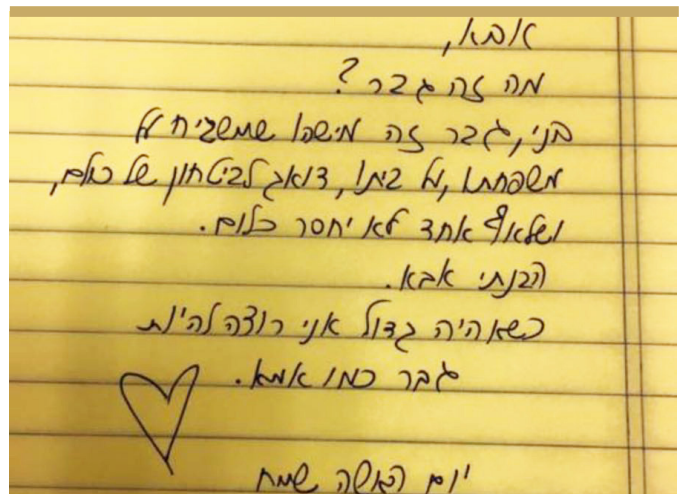 אבא,
מה זה גבר?
בני, גבר זה מישהו שמשגיח על
משפחתו, על ביתו, דואג לביטחון של כולם,
ושלאף אחד לא יחסר כלום.
הבנתי אבא.
כשאהיה גדול אני רוצה להיות
גבר כמו אמא.
יום האשה שמח